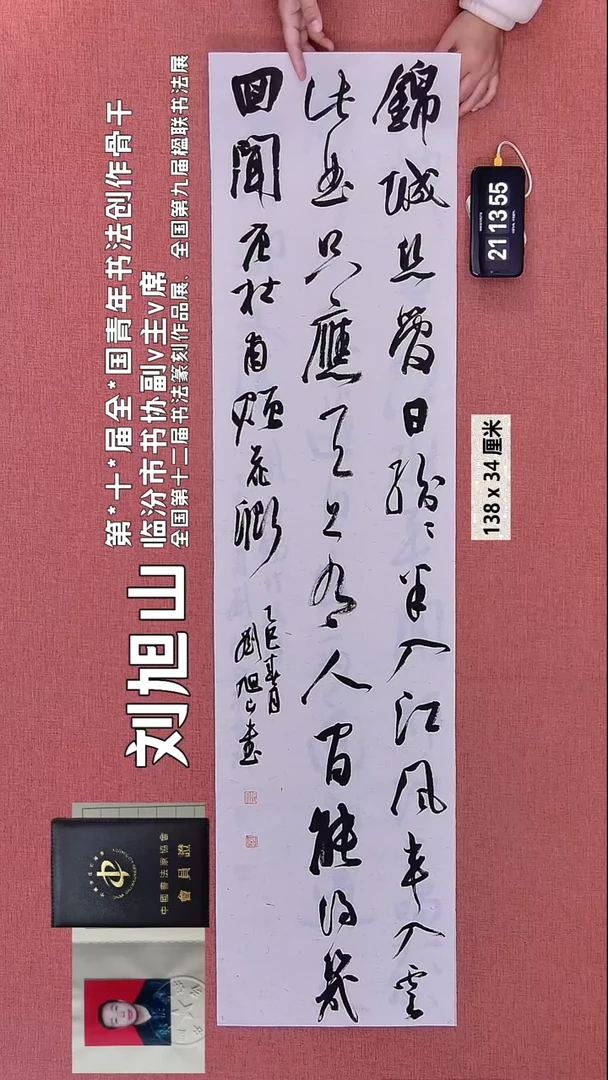 錦城絲管日紛〻半入江風半入雲
此曲只應天上有人間能得幾
回聞 唐杜甫贈花卿
乙巳春月
劉旭山書
第*十*届全*国青年书法创作骨干
临汾市书协副v主v席
全国第十二届书法篆刻作品展、全国第九届楹联书法展
刘旭山
中國書法家協會
會員證
21 13 55
138 x 34 厘米